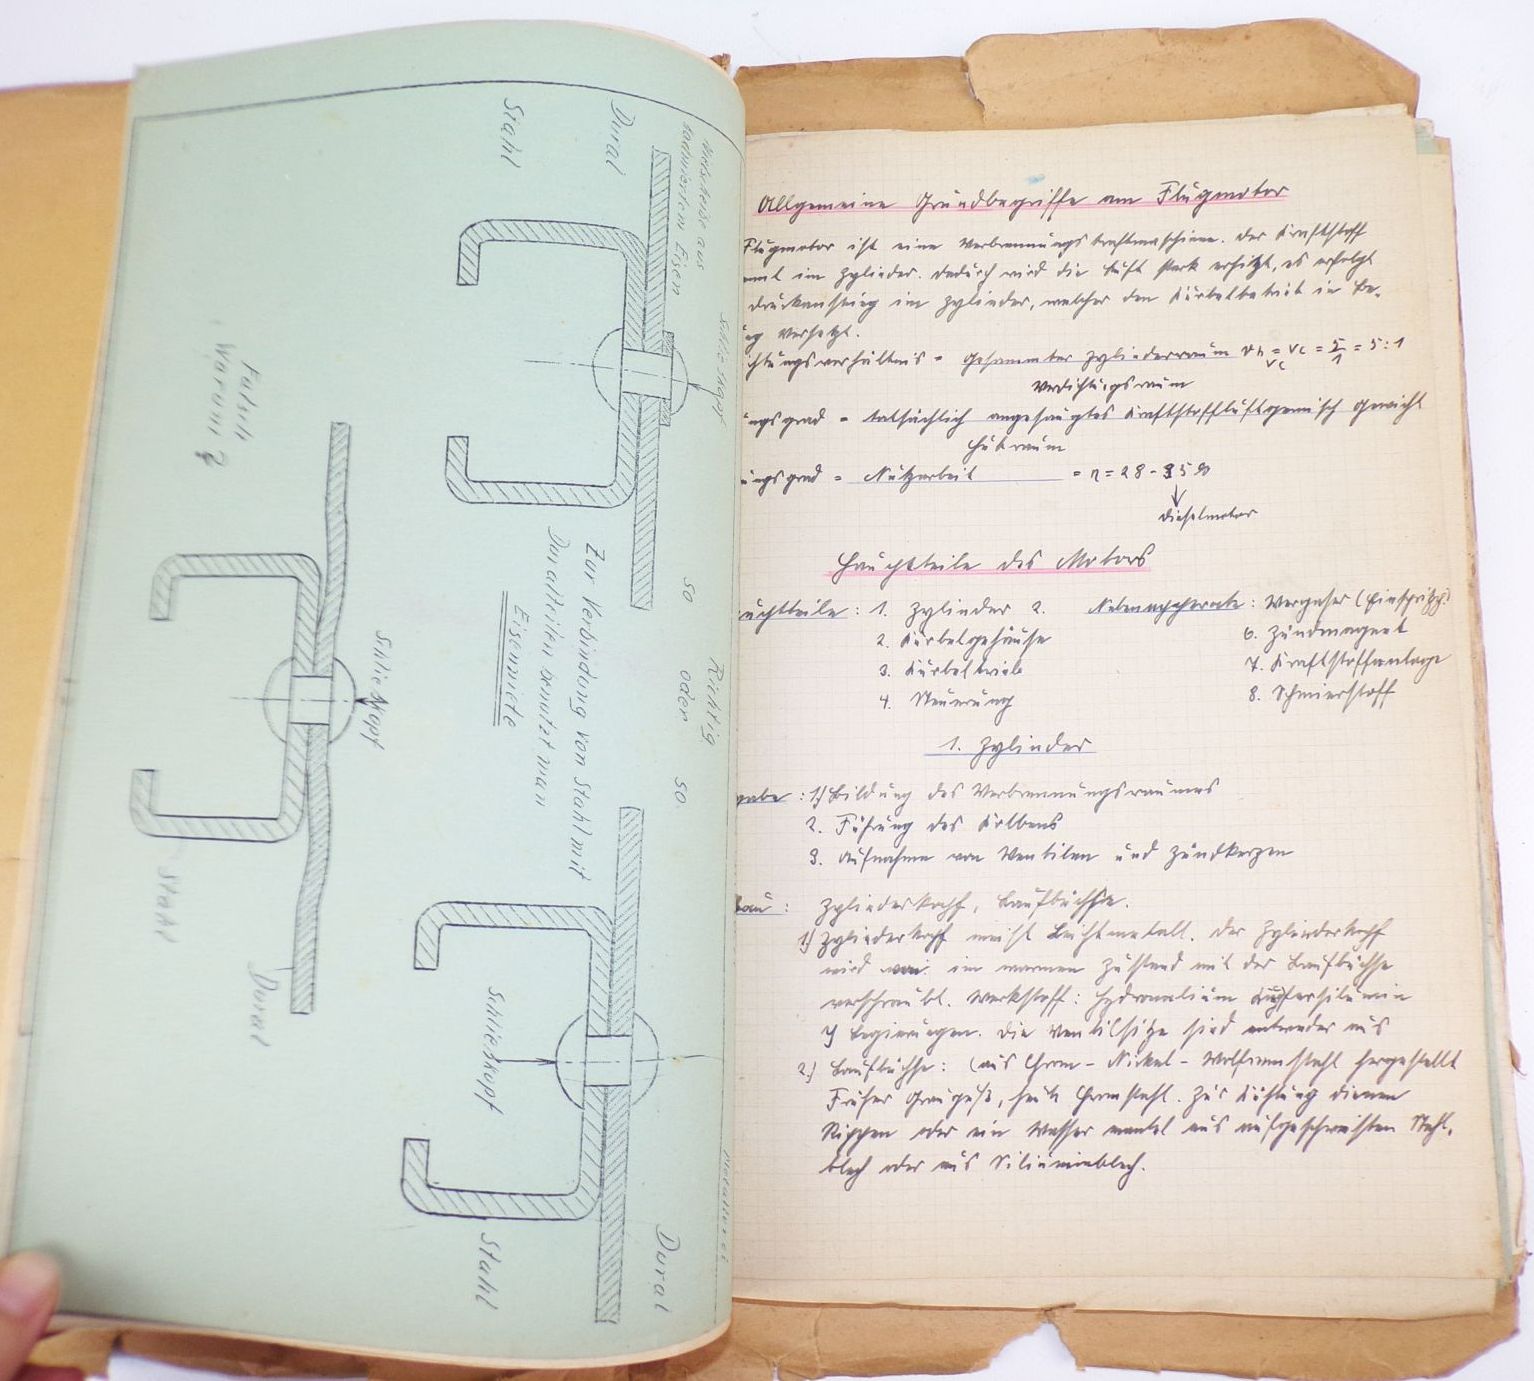 Stahl
Dural
kadmiertem Eisen
Schließkopf
Richtig
so oder so
Zur Verbindung von Stahl mit
Duralteilen benutzt man
Eisenniete
Schließkopf
Stahl
Dural
Falsch
Warum?
Schließkopf
Stahl
Dural
Allgemeine Grundbegriffe am Flugmotor
Flugmotor ist eine Verbrennungskraftmaschine. Der Kraftstoff
im Zylinder. Dadurch wird die Luft stark erhitzt, es erfolgt
Druckanstieg im Zylinder, welcher den Kurbelbetrieb in Be-
versetzt.
chtungsverhältnis = Gesammter Zylinderraum Vh = Vc = 5/1 = 5:1
Verdichtungsraum Vc
ungsgrad = tatsächlich angesaugtes Kraftstoffluftgemisch Gewicht
Hubraum
ungsgrad = Nutzarbeit = η = 28 - 35 %
Dieselmotor
Hauptteile des Motors
uptteile: 1. Zylinder 2. Nebenapperate: Vergaser (Einspritz.)
2. Kurbelgehäuse 6. Zündmagnet
3. Kurbeltrieb 7. Kraftstoffanlage
4. Steuerung 8. Schmierstoff
1. Zylinder
gabe: 1.) Bildung des Verbrennungsraumes
2. Führung des Kolbens
3. Aufnahme von Ventilen und Zündkerzen
bau: Zylinderkopf, Laufbuchse.
1.) Zylinderkopf meist Leichtmetall. Der Zylinderkopf
wird im warmen Zustand mit der Laufbüchse
verschraubt. Werkstoff: Hydronalium Kupfersilumin
Y Legierungen. Die Ventilsitze sind entweder aus
2.) Laufbüchse: (aus Chrom - Nickel - Wolframstahl hergestellt
Früher Grauguß, heute Chromstahl. Zur Kühlung dienen
Rippen oder ein Wasser mantel aus aufgeschweisten Stahl.
blech oder aus Siliuminblech.